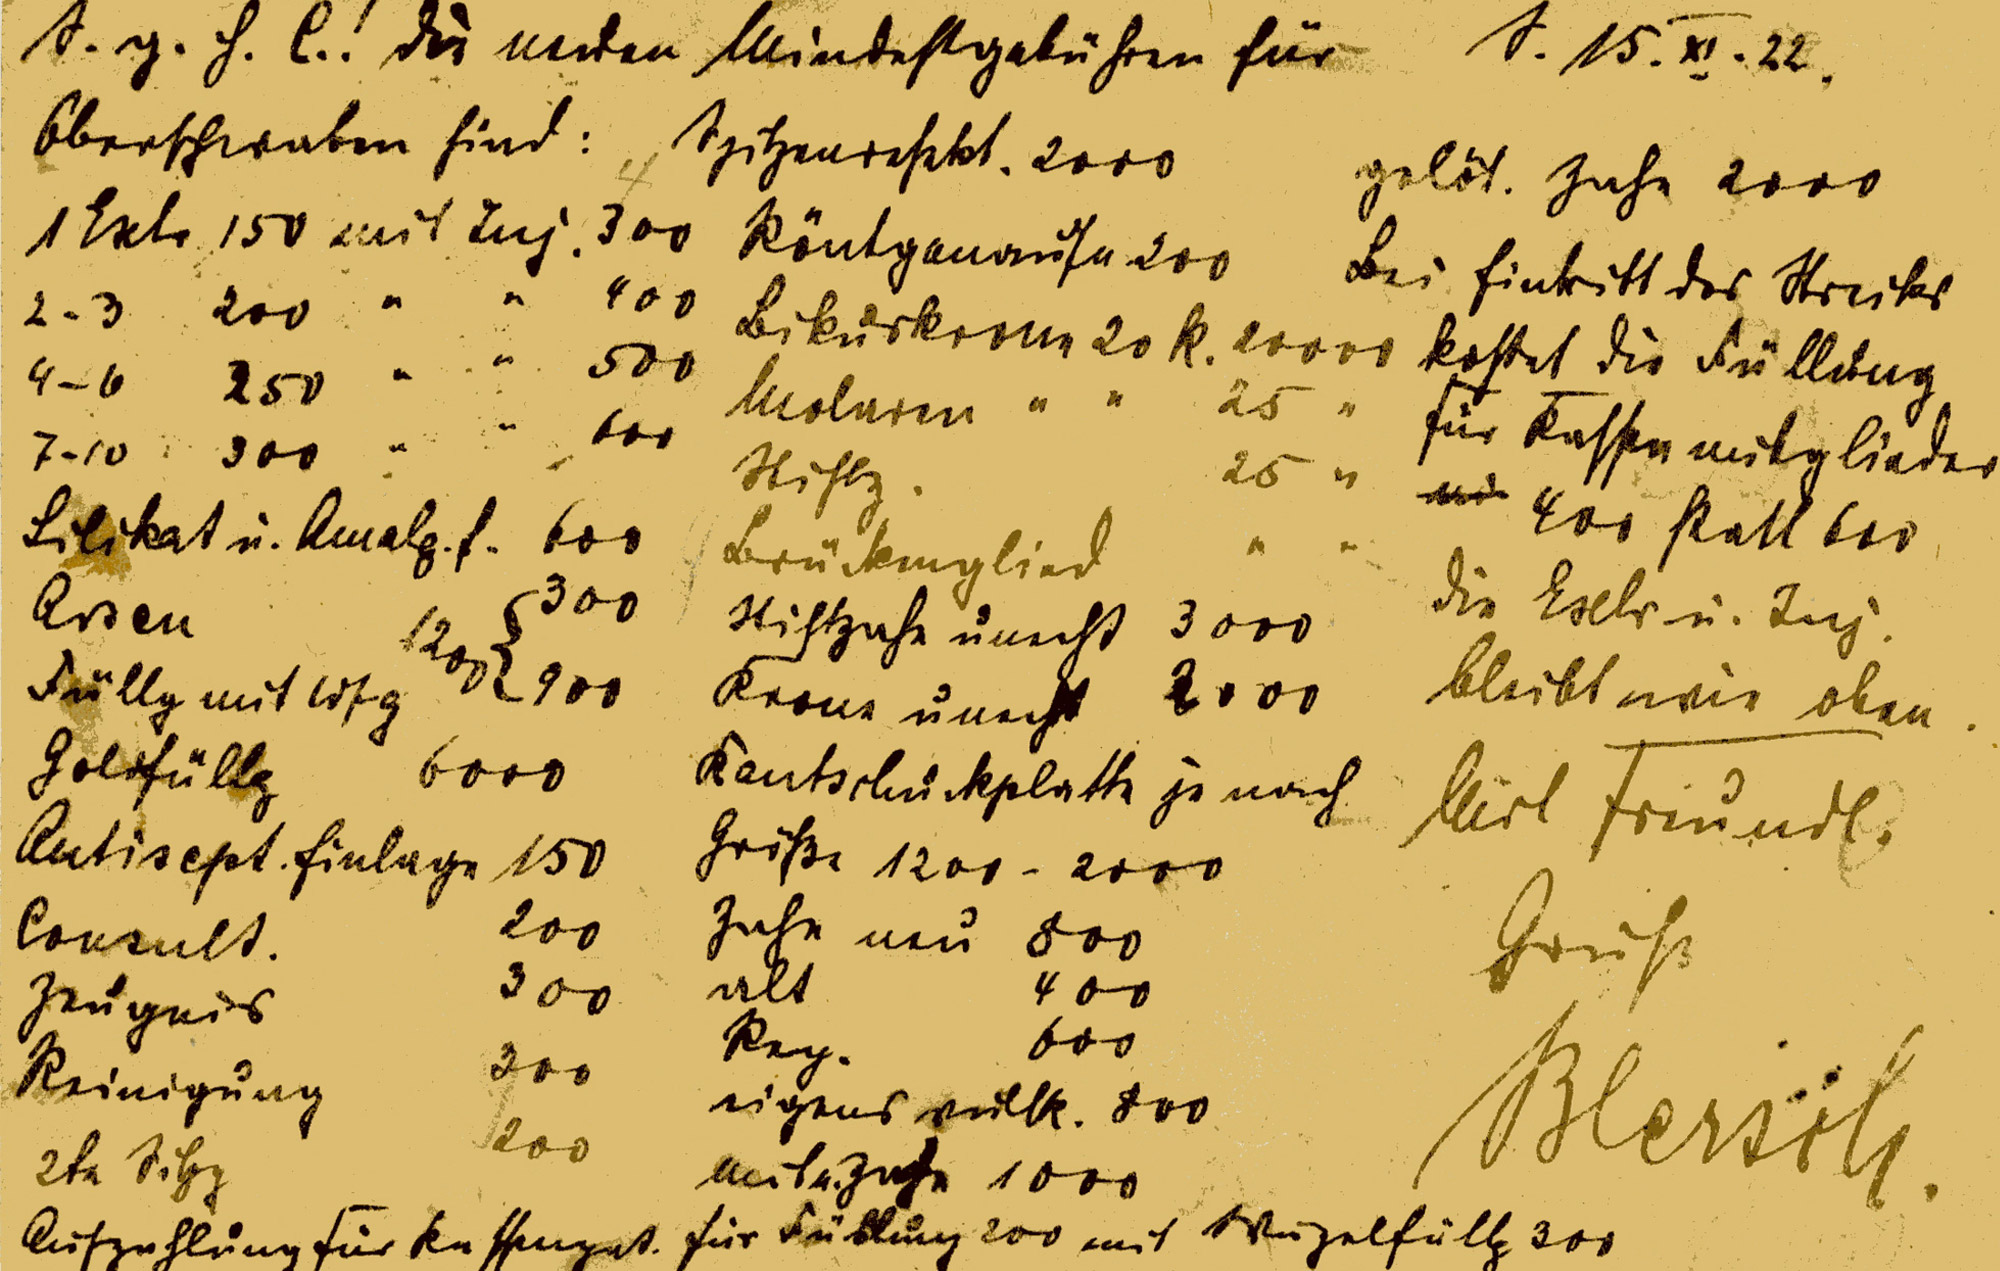 S. g. H. C.! Die neuen Mindestgebühren für
S. 15. XI. 22.
Oberschwaben sind:
1 Extr. 150 mit Inj. 300
2-3 200 " " 400
4-6 250 " " 500
7-10 300 " " 600
Silikat u. Amalg. f. 600
Arsen 300
1200
Füllg mit Wfg 900
Goldfüllg 6000
Antisept. Einlage 150
Consult. 200
Zeugnis 300
Reinigung 300
2te Sitzg 200
Spitzenresekt. 2000
Röntgenaufn 200
Bikuskrone 20 K. 20000
Molaren " " 25 "
Stiftz. 25 "
Brückenglied " "
Stiftzahn unecht 3000
Krone unecht 2000
Kautschuckplatte je nach
Größe 1200 - 2000
Zahn neu 800
alt 400
Rep. 600
eigens vulk. 800
mit n. Zahn 1000
gelöt. Zahn 2000
Bei Eintritt des Streiks
kostet die Füllung
für Kassenmitglieder
400 statt 600
die Extr u. Inj.
bleibt wie oben.
Mit Freundl.
Gruß
Blersch.
Aufzahlung für Kassenpat. für Füllung 200 mit Wurzelfüllg 300